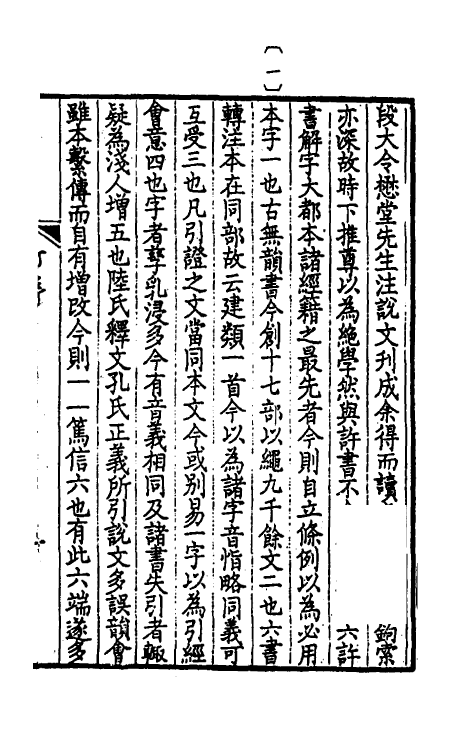 〔一〕
段大令懋堂先生注說文刊成余得而讀
鉤索
亦深故時下推尊以為絕學然與許書不
六許
書解字大都本諸經籍之最先者今則自立條例以為必用
本字一也古無韻書今創十七部以繩九千餘文二也六書
轉注本在同部故云建類一首今以為諸字音恉略同義可
互受三也凡引證之文當同本文今或別易一字以為引經
會意四也字者孳乳浸多今有音義相同及諸書失引者輒
疑為淺人增五也陸氏釋文孔氏正義所引說文多誤韻會
雖本繫傳而自有增改今則一一篤信六也有此六端遂多